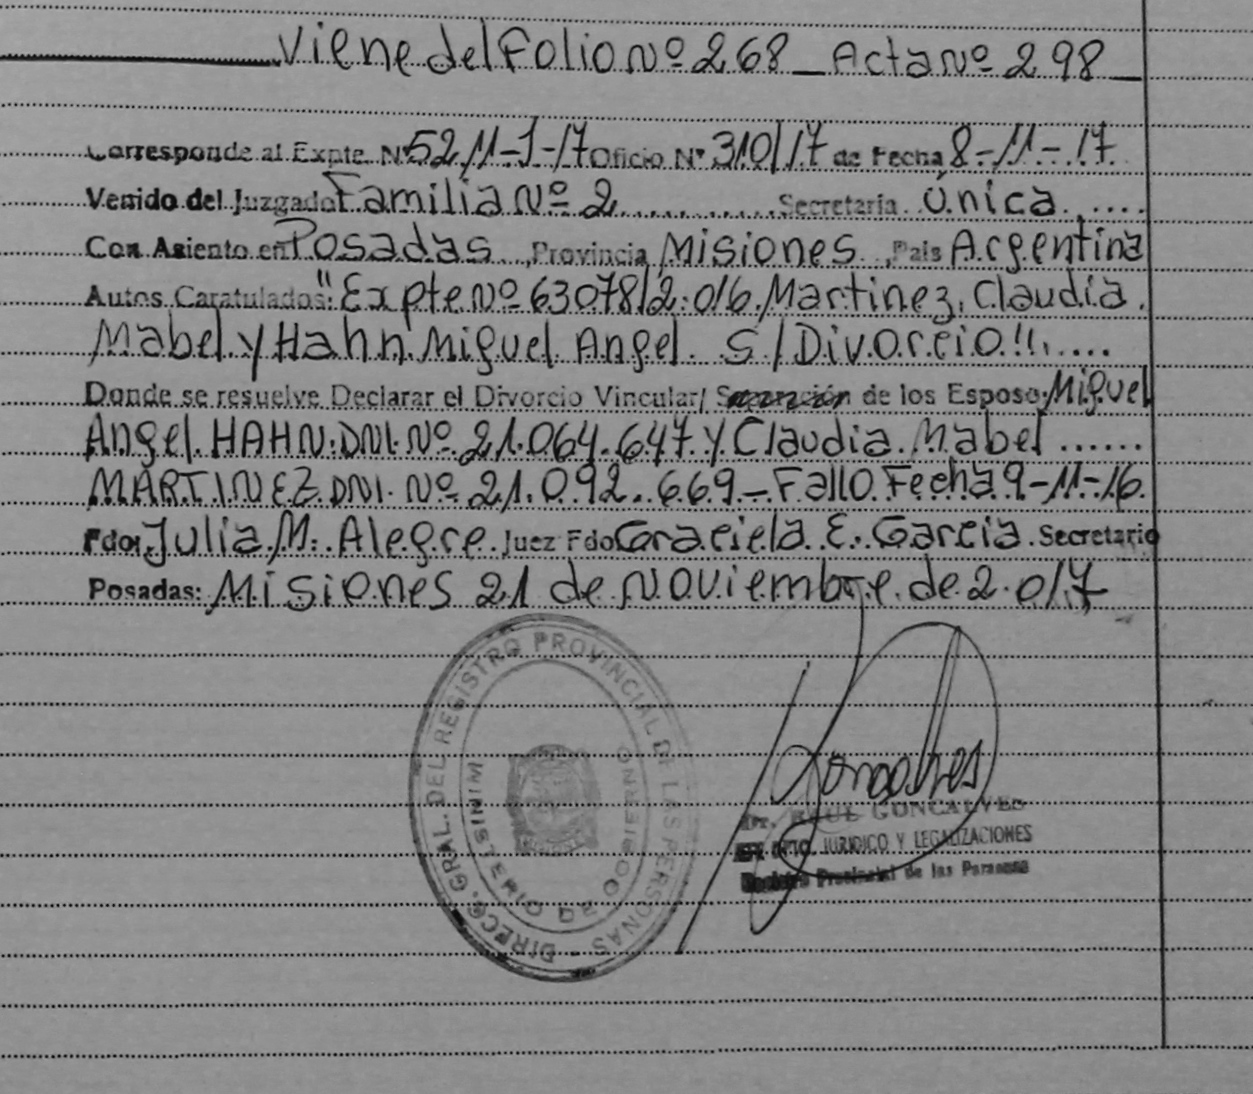 Viene del Folio Nº 268 _ Acta Nº 298 _
Corresponde al Expte. Nº 5211-J-17 Oficio Nº 310/17 de Fecha 8-11-17
Venido del Juzgado Familia Nº 2 .......... Secretaria Única ....
Con Asiento en Posadas, Provincia Misiones, Pais Argentina
Autos Caratulados "Expte Nº 63078/2.016 Martinez, Claudia
Mabel y Hahn Miguel Angel S/Divorcio" ....
Donde se resuelve Declarar el Divorcio Vincular/ Separación de los Esposo: Miguel
Angel HAHN DNI Nº 21.064.647 y Claudia Mabel ......
MARTINEZ DNI. Nº 21.092.669 - Fallo Fecha 9-11-16
Fdo: Julia M. Alegre Juez Fdo Graciela E. Garcia Secretario
Posadas: Misiones 21 de Noviembre de 2.017
DIRECC. GRAL. DEL REGISTRO PROVINCIAL DE LAS PERSONAS -
MINISTERIO DE GOBIERNO
Dr. RAUL GONCALVES
JEFE DPTO. JURIDICO Y LEGALIZACIONES
Registro Provincial de las Personas